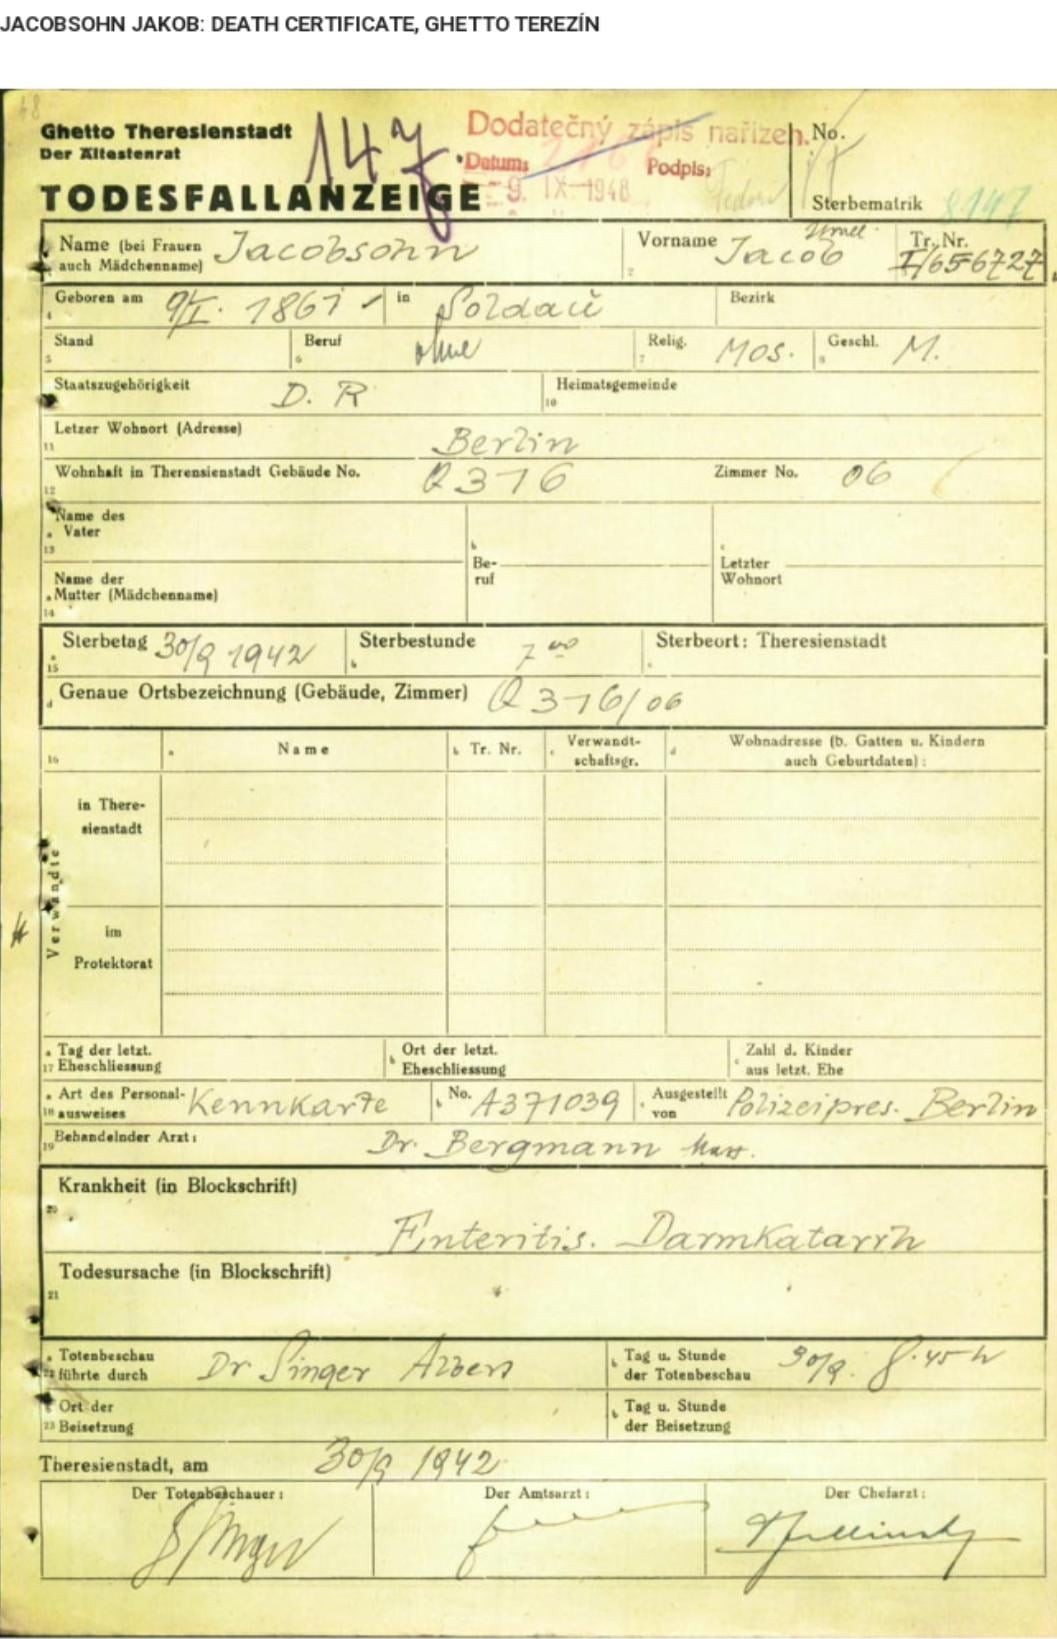 JACOBSOHN JAKOB: DEATH CERTIFICATE, GHETTO TEREZÍN
48
Ghetto Theresienstadt
Der Ältestenrat
147
Dodatečný zápis nařízen.
Datum:
Podpis:
-9. IX. 1948
No.
TODESFALLANZEIGE
Sterbematrik 8147
Name (bei Frauen auch Mädchenname) Jacobsohn
2 Vorname Jacob
Tr. Nr. I/65 6727
4 Geboren am 9/I. 1861 in Soldau Bezirk
5 Stand 6 Beruf ohne 7 Relig. Mos. 8 Geschl. M.
Staatszugehörigkeit D. R 10 Heimatsgemeinde
11 Letzer Wohnort (Adresse) Berlin
12 Wohnhaft in Therensienstadt Gebäude No. Q 316 Zimmer No. 06
13 a Name des Vater
14 a Name der Mutter (Mädchenname)
b Beruf
c Letzter Wohnort
15 a Sterbetag 30/9 1942 b Sterbestunde 7 00 c Sterbeort: Theresienstadt
d Genaue Ortsbezeichnung (Gebäude, Zimmer) Q 316/06
16 a Name b Tr. Nr. c Verwandtschaftsgr. d Wohnadresse (b. Gatten u. Kindern auch Geburtdaten):
Verwandte
in Theresienstadt
im Protektorat
17 a Tag der letzt. Eheschliessung b Ort der letzt. Eheschliessung c Zahl d. Kinder aus letzt. Ehe
18 a Art des Personalausweises Kennkarte b No. A371039 c Ausgestellt von Polizeipres. Berlin
19 Behandelnder Arzt: Dr. Bergmann
20 Krankheit (in Blockschrift)
Enteritis. Darmkatarrh
21 Todesursache (in Blockschrift)
22 a Totenbeschau führte durch Dr Singer Albert b Tag u. Stunde der Totenbeschau 30/9. 8.45 h
23 a Ort der Beisetzung b Tag u. Stunde der Beisetzung
Theresienstadt, am 30/9 1942
Der Totenbeschauer: Der Amtsarzt: Der Chefarzt:
Singer